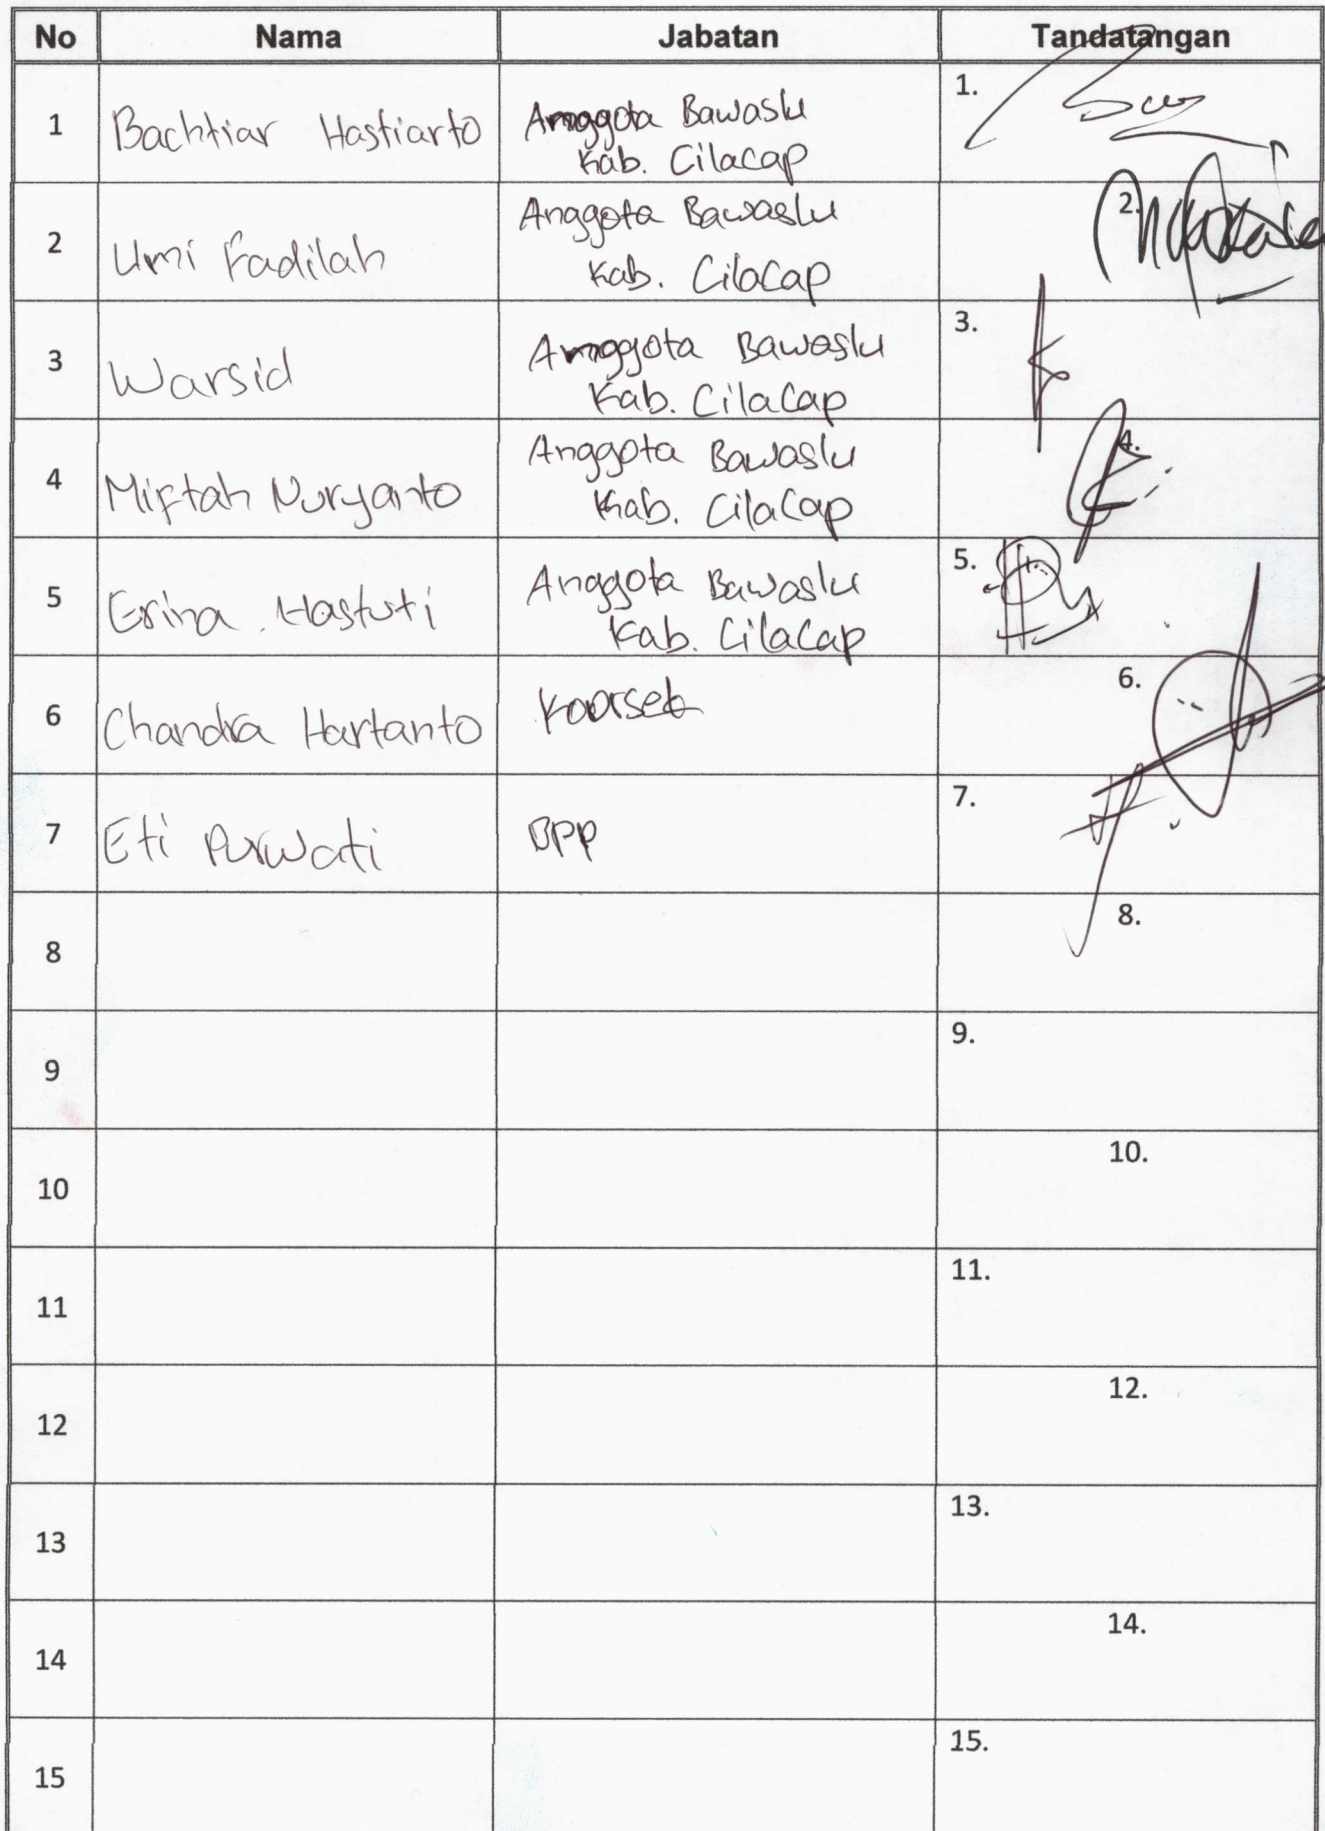 No Nama Jabatan Tandatangan
1 Bachtiar Hastiarto Anggota Bawaslu 1.
Kab. Cilacap
2 Umi Fadilah Anggota Bawaslu 2.
Kab. Cilacap
3 Warsid Anggota Bawaslu 3.
Kab. Cilacap
4 Miftah Nuryanto Anggota Bawaslu 4.
Kab. Cilacap
5 Erina Hastuti Anggota Bawaslu 5.
Kab. Cilacap
6 Chandra Hartanto Koorset 6.
7 Eti Purwati BPP 7.
8 8.
9 9.
10 10.
11 11.
12 12.
13 13.
14 14.
15 15.